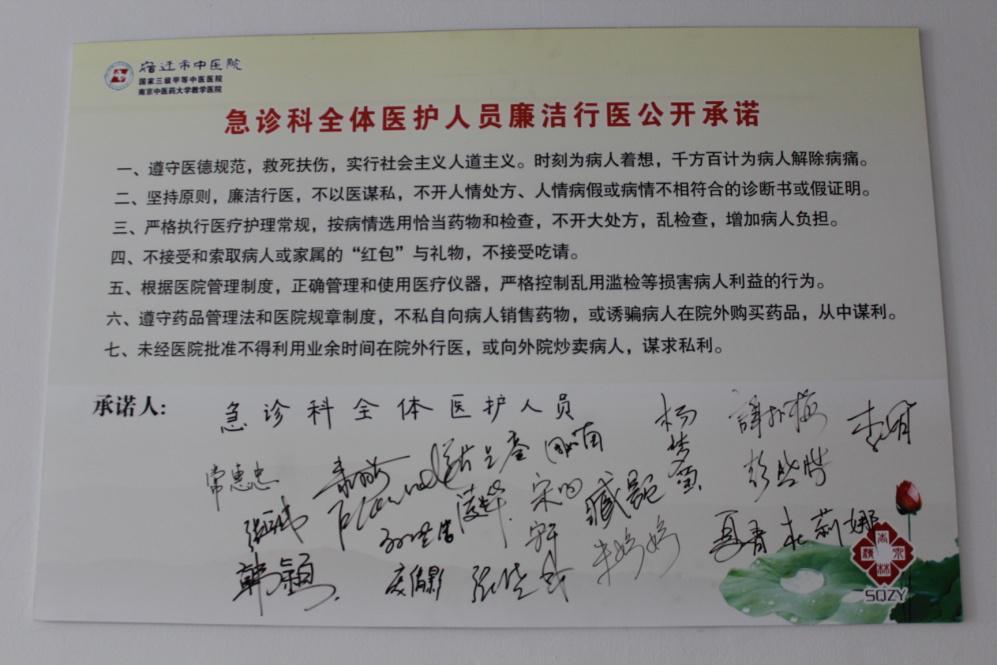 宿迁市中医院
国家三级甲等中医医院
南京中医药大学教学医院
急诊科全体医护人员廉洁行医公开承诺
一、遵守医德规范，救死扶伤，实行社会主义人道主义。时刻为病人着想，千方百计为病人解除病痛。
二、坚持原则，廉洁行医，不以医谋私，不开人情处方、人情病假或病情不相符合的诊断书或假证明。
三、严格执行医疗护理常规，按病情选用恰当药物和检查，不开大处方，乱检查，增加病人负担。
四、不接受和索取病人或家属的“红包”与礼物，不接受吃请。
五、根据医院管理制度，正确管理和使用医疗仪器，严格控制乱用滥检等损害病人利益的行为。
六、遵守药品管理法和医院规章制度，不私自向病人销售药物，或诱骗病人在院外购买药品，从中谋利。
七、未经医院批准不得利用业余时间在院外行医，或向外院炒卖病人，谋求私利。
承诺人: 急诊科全体医护人员
常惠忠
韩颖
朱婷婷
夏青 杜莉娜
SQZY